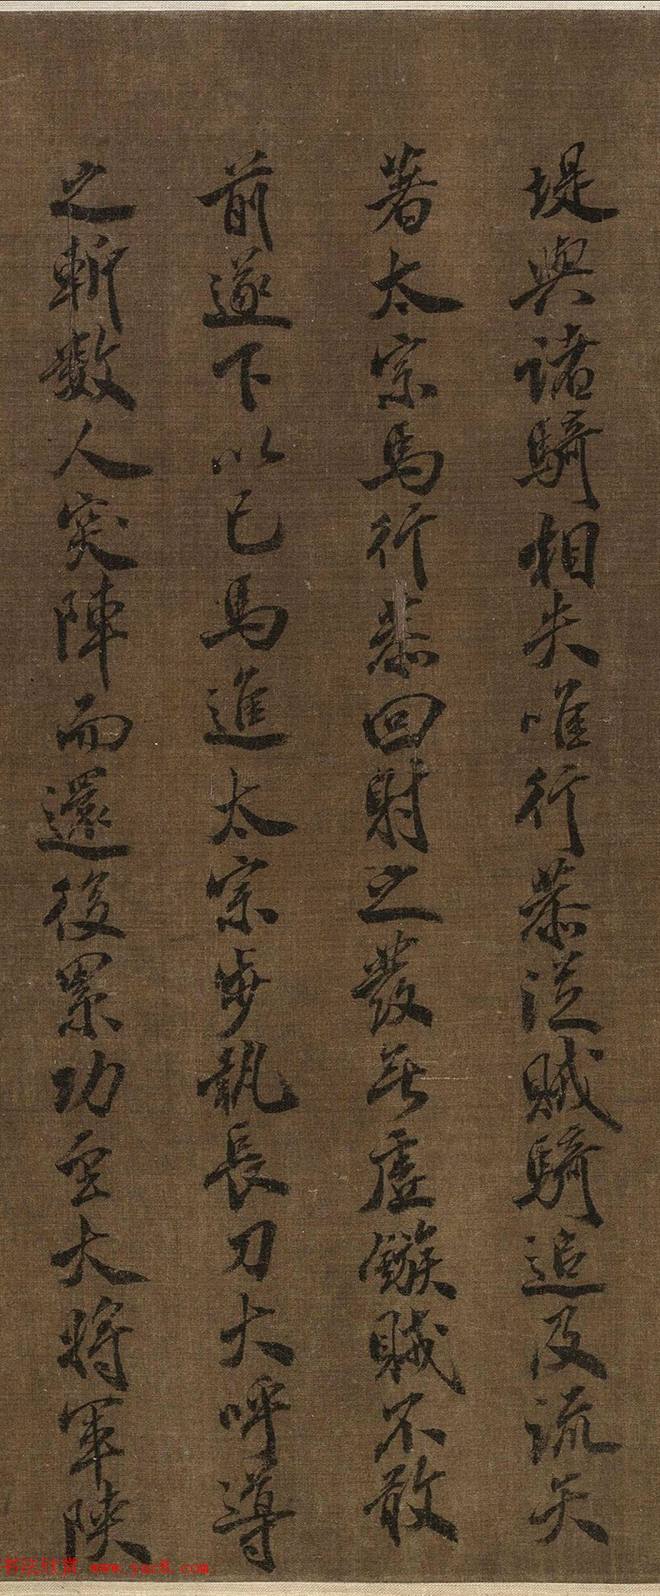 堤與諸騎相失唯行恭從賊騎追及流矢
著太宗馬行恭回射之發無虛鏃賊不敢
前遂下以己馬進太宗步執長刀大呼導
之斬數人突陣而還後累功至大將軍陝
书法欣赏 www.yac8.com